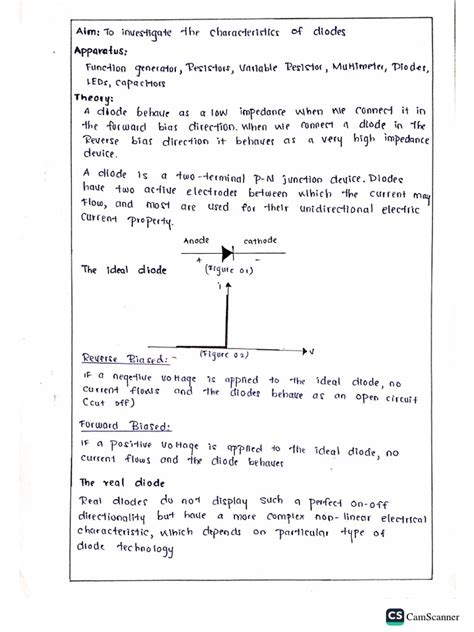 Aim: To investigate the characteristics of diodes
Apparatus:
Function generator, Resistors, Variable Resistor, Multimeter, Diodes,
LEDs, capacitors
Theory:
A diode behave as a low impedance when we connect it in
the forward bias direction. When we connect a diode in the
Reverse bias direction it behaves as a very high impedance
device.
A diode is a two-terminal P-N junction device. Diodes
have two active electrodes between which the current may
flow, and most are used for their unidirectional electric
current property.
Anode cathode
+ -
The ideal diode (Figure 01)
i
(Figure 02)
v
Reverse Biased:-
IF a negetive voltage is applied to the ideal diode, no
current flows and the diodes behave as an open circuit
(cut off)
Forward Biased:
IF a positive voltage is applied to the ideal diode, no
current flows and the diode behaves
The real diode
Real diodes do not display such a perfect on-off
directionality but have a more complex non-linear electrical
characteristic, which depends on particular type of
diode technology
CS CamScanner